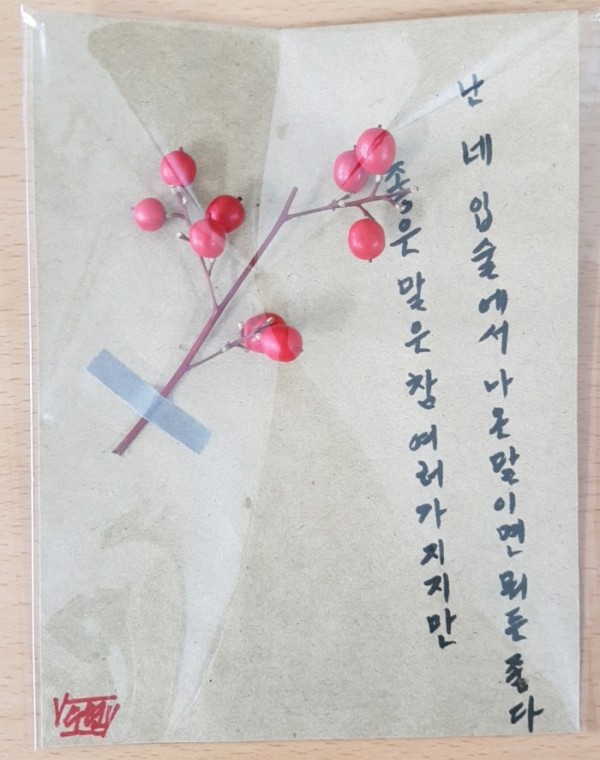 좋은 말은 참 여러가지지만
난 네 입술에서 나온말이면 뭐든 좋다